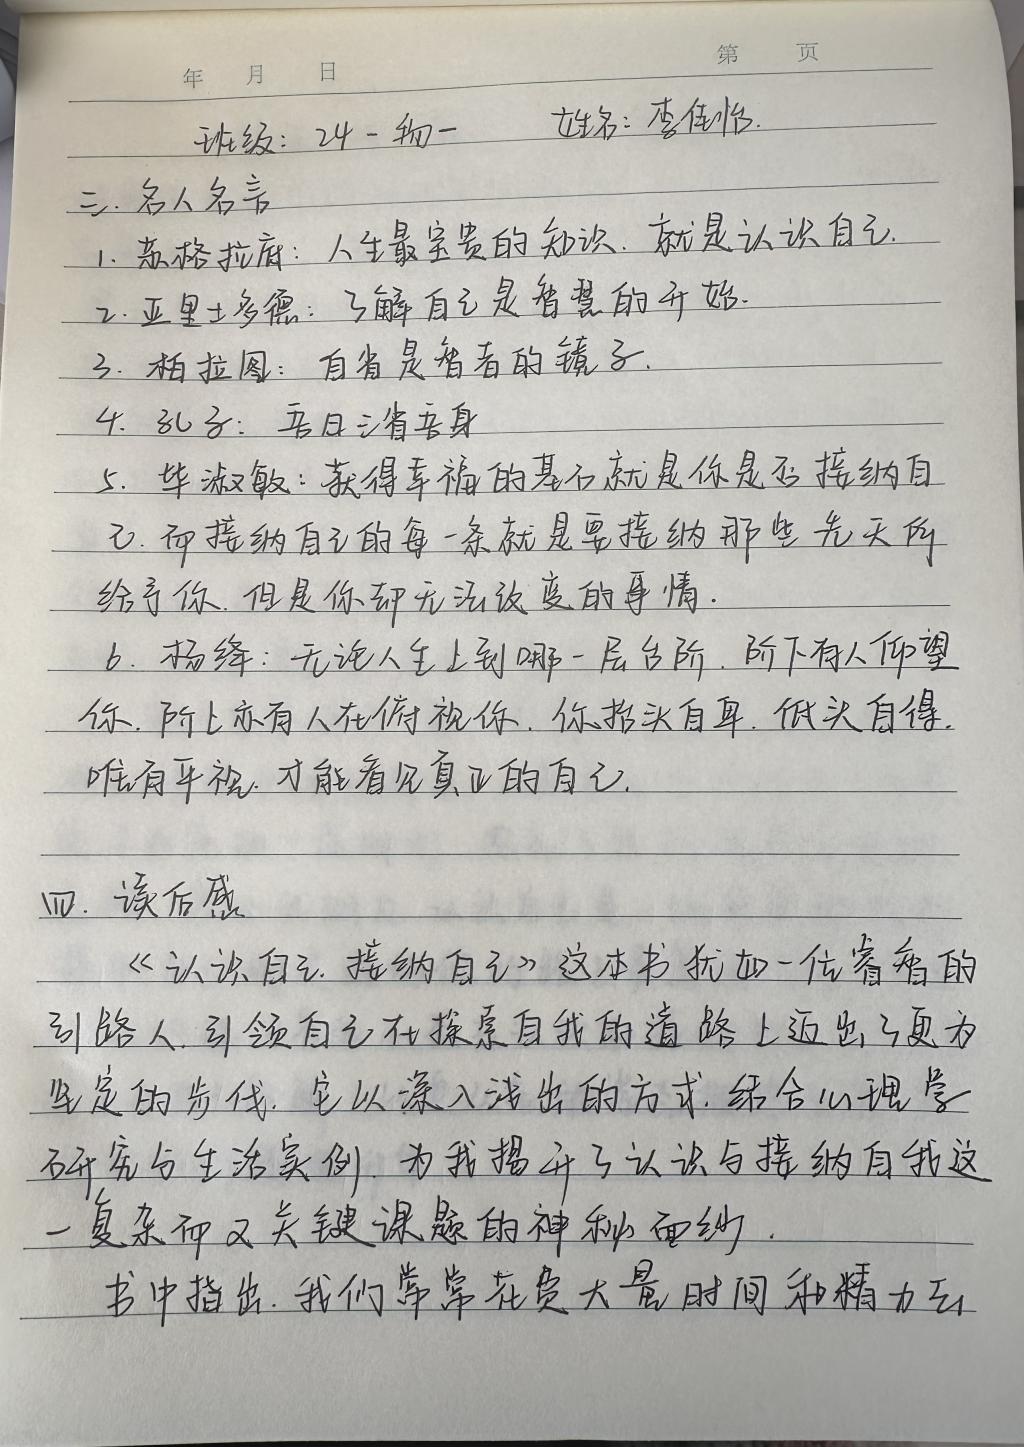 年 月 日 第 页
班级: 24-物一 姓名: 李佳怡.
三. 名人名言
1. 苏格拉底: 人生最宝贵的知识. 就是认识自己.
2. 亚里士多德: 了解自己是智慧的开始.
3. 柏拉图: 自省是智者的镜子.
4. 孔子: 吾日三省吾身
5. 毕淑敏: 获得幸福的基石就是你是否接纳自
己. 而接纳自己的每一条就是要接纳那些先天所
给予你. 但是你却无法改变的事情.
6. 杨绛: 无论人生上到哪一层台阶. 阶下有人仰望
你. 阶上亦有人在俯视你. 你抬头自卑. 低头自得.
唯有平视. 才能看见真正的自己.
四. 读后感
《认识自己. 接纳自己》这本书犹如一位睿智的
引路人. 引领自己在探索自我的道路上迈出了更为
坚定的步伐. 它以深入浅出的方式. 结合心理学
研究与生活实例. 为我揭开了认识与接纳自我这
一复杂而又关键课题的神秘面纱.
书中指出. 我们常常花费大量时间和精力去